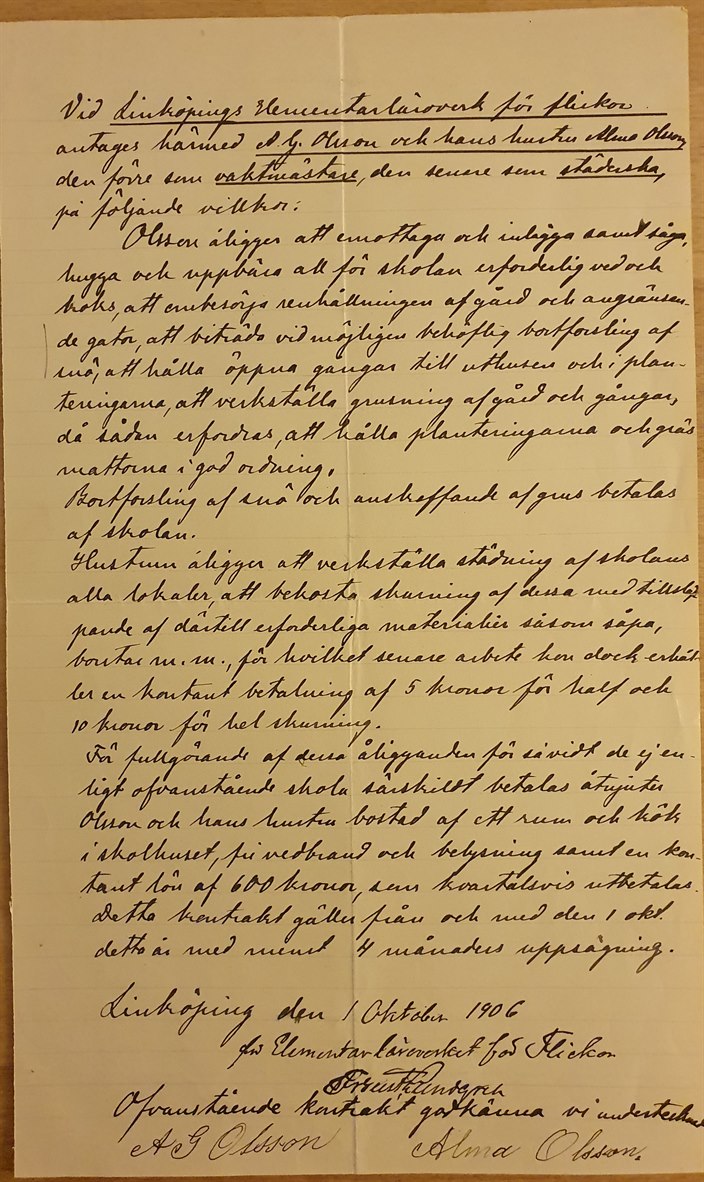 Vid Linköpings Elementarläroverk för flickor
antages härmed A. G. Olsson och hans hustru Alma Olsson,
den förre som vaktmästare, den senare som städerska,
på följande villkor:
Olsson åligger att emottaga och inlägga samt såga,
hugga och uppbära all för skolan erforderlig ved och
koks, att ombesörja renhållningen af gård och angränsan-
de gator, att biträda vid möjligen behöflig bortforsling af
snö, att hålla öppna gångar till uthusen och i plan-
teringarna, att verkställa grusning af gård och gångar,
då sådan erfordras, att hålla planteringarna och gräs
mattorna i god ordning.
Bortforsling af snö och anskaffande af grus betalas
af skolan.
Hustrun åligger att verkställa städning af skolans
alla lokaler, att bekosta skurning af dessa med tillslip
pande af därtill erforderliga materialier såsom såpa,
borstar m. m., för hvilket senare arbete hon dock erhål
ler en kontant betalning af 5 kronor för half och
10 kronor för hel skurning.
För fullgörande af dessa åligganden för såvidt de ej en-
ligt ofvanstående skola särskildt betalas åtnjuter
Olsson och hans hustru bostad af ett rum och kök
i skolhuset, fri vedbrand och belysning samt en kon-
tant lön af 600 kronor, som kvartalsvis utbetalas.
Detta kontrakt gäller från och med den 1 okt.
detta år med minst 4 månaders uppsägning.
Linköping den 1 Oktober 1906
för Elementarläroverket för Flickor
Ofvanstående kontrakt godkänna vi undertecknade
A G Olsson Alma Olsson.